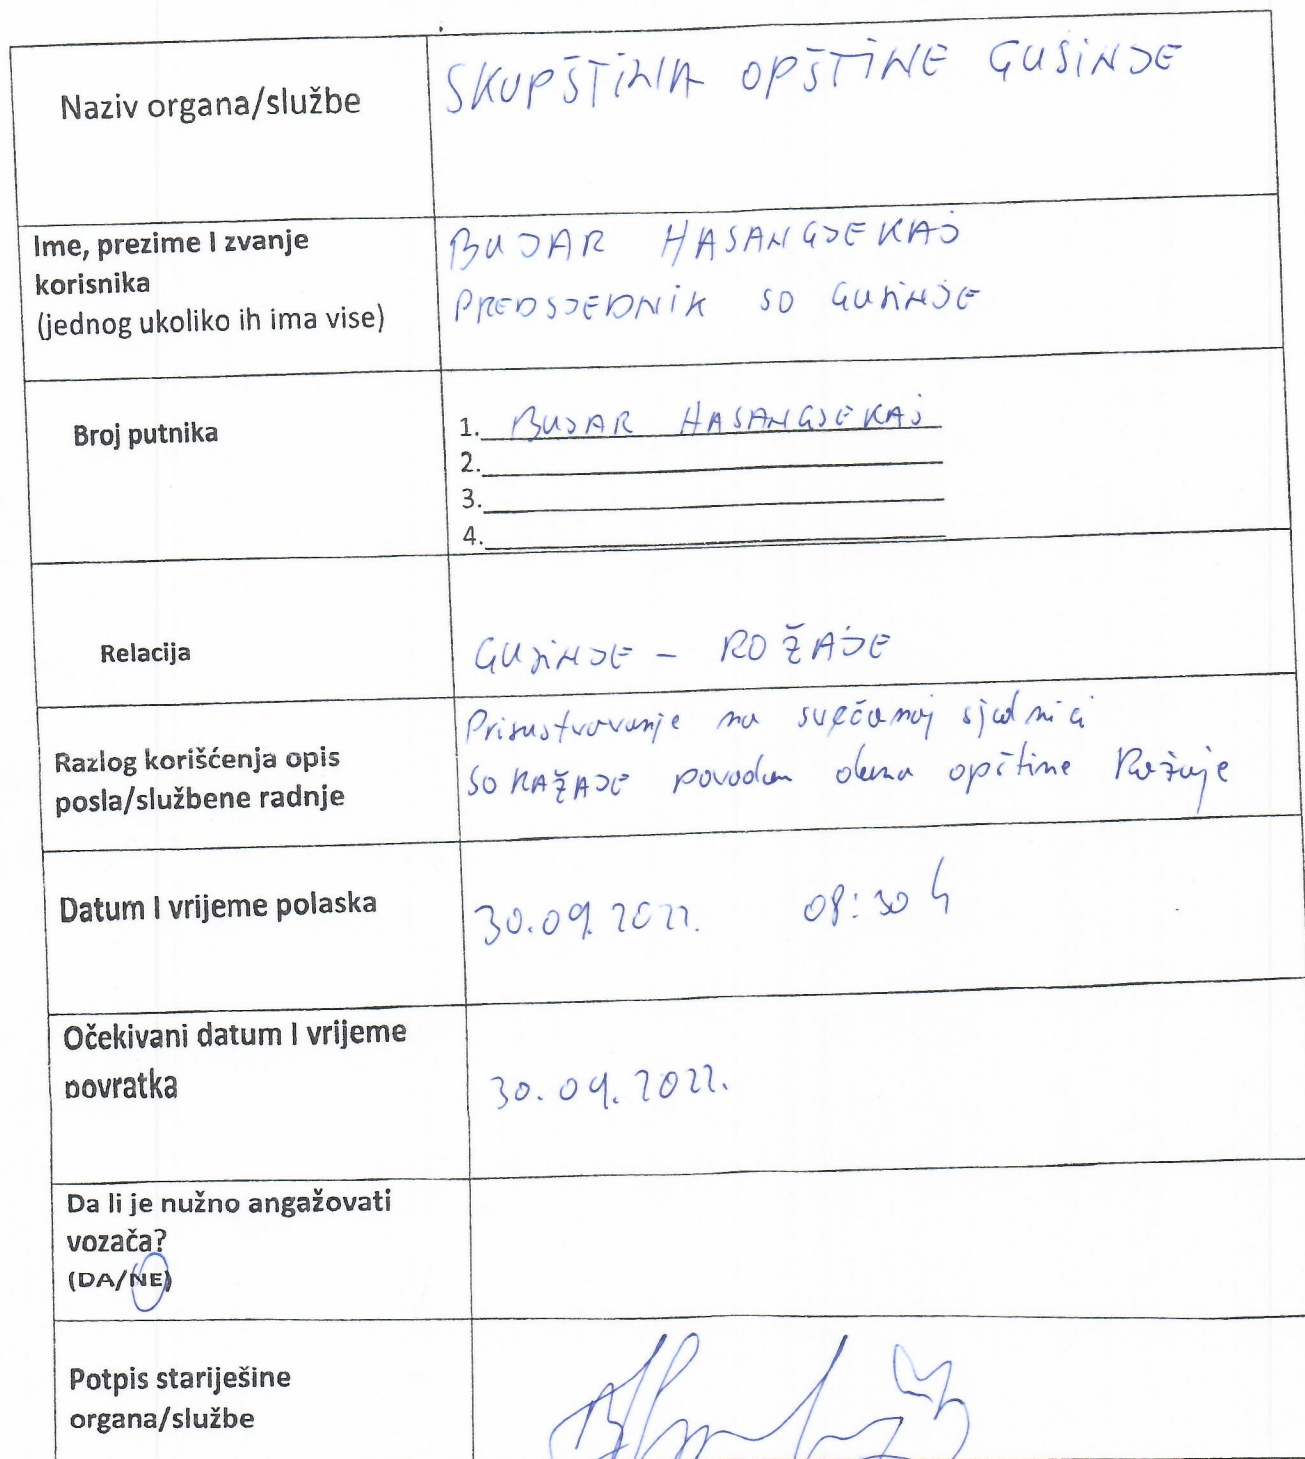 Naziv organa/službe
SKUPŠTINA OPŠTINE GUSINJE
Ime, prezime I zvanje
korisnika
(jednog ukoliko ih ima vise)
BUJAR HASANGJEKAJ
PREDSJEDNIK SO GUSINJE
Broj putnika
1. BUJAR HASANGJEKAJ
2.
3.
4.
Relacija
GUSINJE - ROŽAJE
Razlog korišćenja opis
posla/službene radnje
Prisustvovanje na svečanoj sjednici
SO RAŽAJE povodom dana opštine Rožaje
Datum I vrijeme polaska
30.09.2022. 08:30 h
Očekivani datum I vrijeme
povratka
30.09.2022.
Da li je nužno angažovati
vozača?
(DA/NE)
Potpis starješine
organa/službe